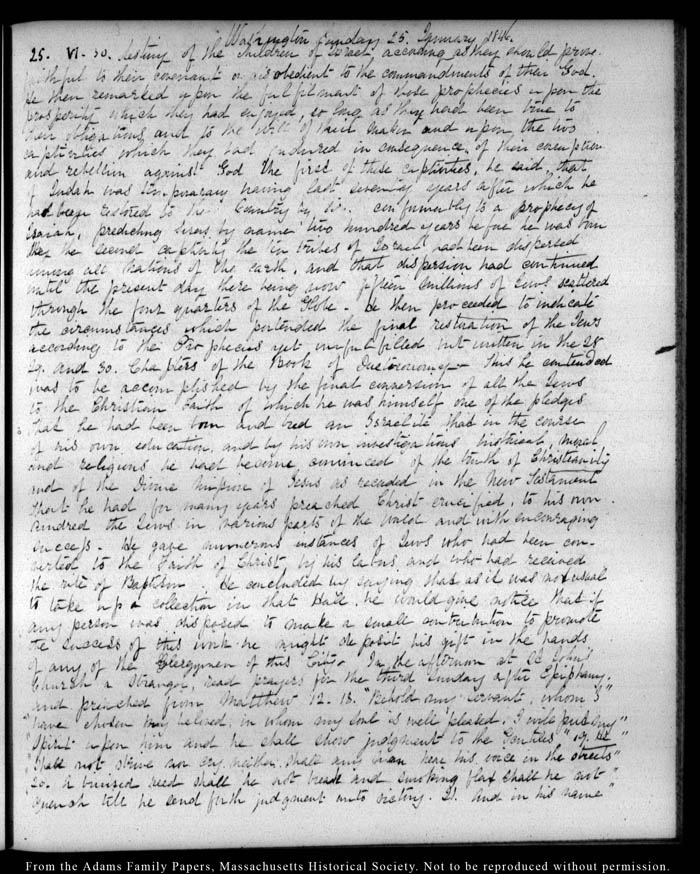 Washington Sunday 25. January 1846.
25. VI. 30. destiny of the children of Israel according as they should prove
faithful to their covenant or disobedient to the commandments of their God.
He then remarked upon the fulfilment of those prophecies upon the
prosperity which they had enjoyed, so long as they had been true to
their obligations, and to the will of their maker and upon, the two
captivities which they had endured in consequence, of their corruption
and rebellion against God The first of these captivities, he said, that
of Judah was temporary having last seventy years after which he
had been restored to the Country by conformably to a prophecy of
Isaiah, predicting Cyrus by name two hundred years before he was born
the second captivity the ten tribes of Israel had been dispersed
among all Nations of the earth, and that dispersion had continued
until the present day there being now fifteen millions of Jews scattered
through the four quarters of the Globe - He then proceeded to indicate
the circumstances which portended the final restoration of the Jews
according to the Prophecies yet unfulfilled but written in the 28
29. and 30. Chapters of the Book of Deuteronomy - This he contended
was to be accomplished by the final conversion of all the Jews
to the Christian faith of which he was himself one of the pledges
that he had been born and bred an Israelite that in the course
of his own education, and by his own investigations historical, moral
and religious he had become convinced of the truth of Christianity
and of the Divine Mission of Jesus as recorded in the New Testament
that he had for many years preached Christ crucified, to his own
kindred the Jews in various parts of the world and with encouraging
success. He gave numerous instances of Jews who had been con-
verted to the Faith of Christ, by his labours, and who had received
the rite of Baptism. He concluded by saying that as it was not usual
to take up a collection in that Hall, he would give notice that if
any person was disposed to make a small contribution to promote
the success of this work he might deposit his gift in the hands
of any of the Clergymen of this City - In the afternoon at St John's
Church a Stranger, read prayers for the third Sunday after Epiphany.
and preached from Matthew 12. 18. "Behold my servant, whom I"
"have chosen my beloved, in whom my soul is well pleased, I will put my"
"Spirit upon him and he shall show judgment to the Gentiles" 19. He"
"shall not strive nor cry neither shall any man hear his voice in the streets"
20. A bruised reed shall he not break and smoking flax shall he not"
quench till he send forth judgment unto victory. 21. And in his name"
From the Adams Family Papers, Massachusetts Historical Society. Not to be reproduced without permission.